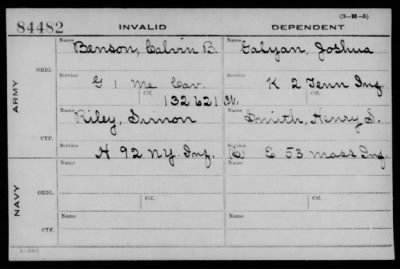 (3-H-3)
84482 INVALID DEPENDENT
Name Benson, Calvin B. Name Galyan, Joshua
ORIG.
Service G 1 Me Cav. Service K 2 Tenn Inf.
Ctf. 132621 Ctf.
ARMY
Name Riley, Simon Name Smith, Henry S.
CTF.
Service H 92 N.Y. Inf. Service E 53 Mass Inf.
Name Name
NAVY
ORIG.
Service Ctf. Service Ctf.
Name Name
CTF.
Service Service